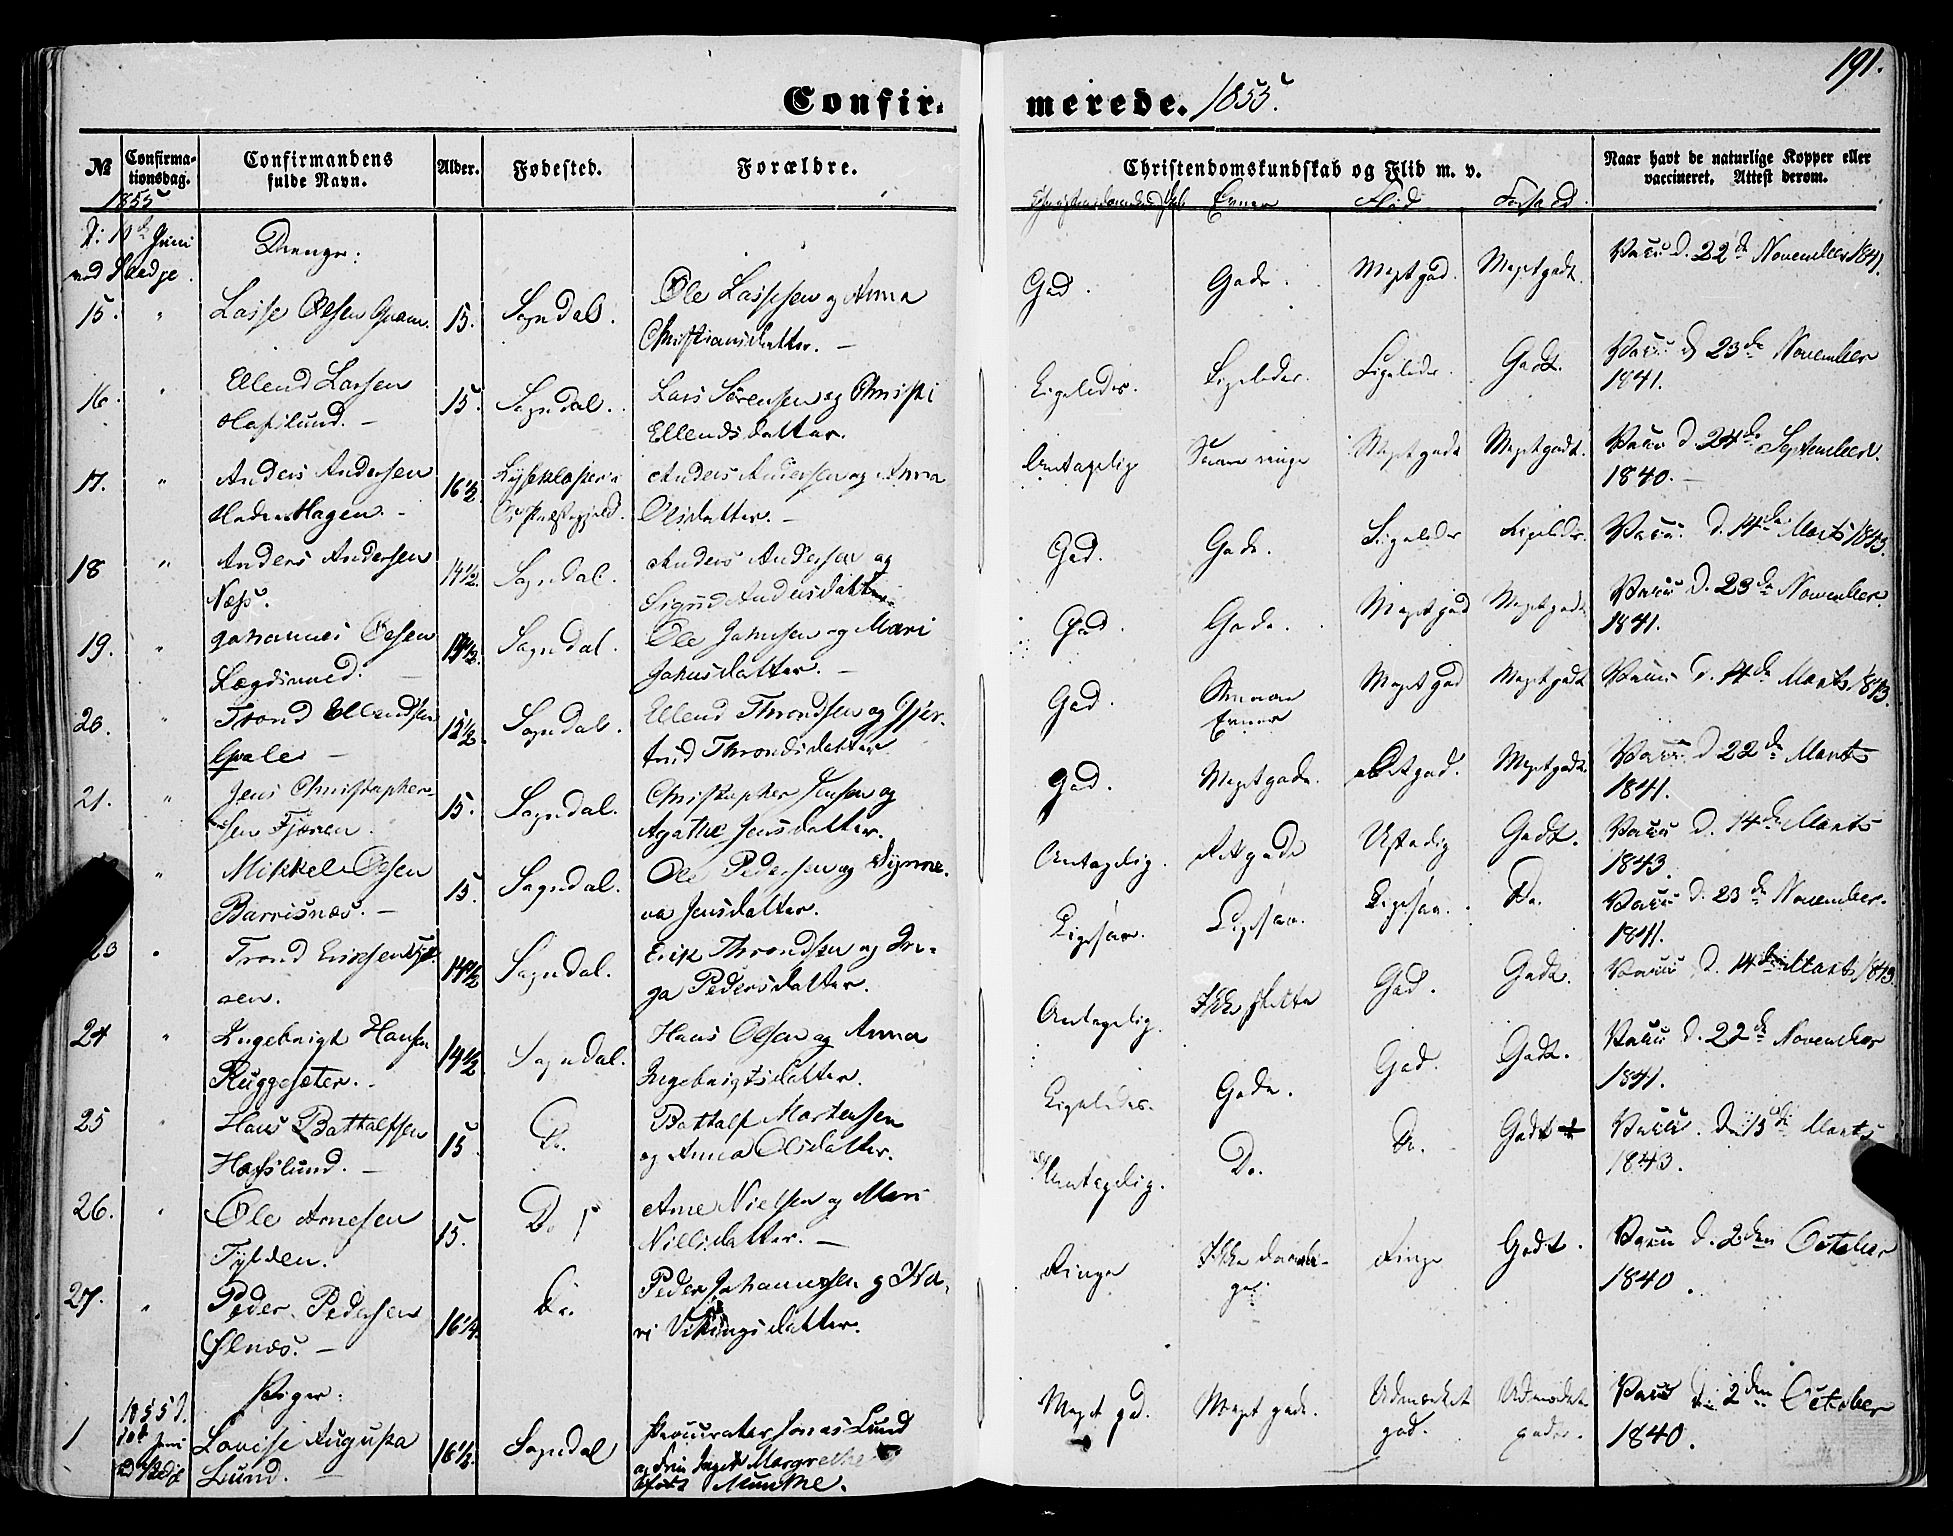 191.
Confirmerede. 1855.
№ Confirmationsdag. Confirmandens fulde Navn. Alder. Fødested. Forældre. Christendomskundskab og Flid m. v. Naar havt de naturlige Kopper eller vaccineret, Attest derom.
1855 Evner Flid Forhold
Drenge:
15. " Lasse Olsen 15. Sogndal. Ole Lassesen og Anna Christiansdatter. — God. Gode. Meget god. Meget godt. Vacc. d. 22de November 1841.
16. " Ellend Larsen Hafslund. — 15. Sogndal. Lars Sørensen og Christi Ellendsdatter. Ligeledes. Ligeledes. Ligeledes Godt. Vacc. d 23de November 1841.
17. " Anders Andersen Hagen. — 16½ Lysekloster i Anders Andersen og Anna Olsdatter. — Antagelig Svane ringe Meget godt Meget godt. Vacc. d 24de September 1840. —
18 " Anders Andersen Næs. 14½. Sogndal. Anders Andersen og Sigrid Andersdatter. God. Gode. Ligeledes Ligeledes. Vacc. d. 14de Marts 1843.
19. " Johannes Olsen 14½. Sogndal. Ole Johnsen og Mari Johnsdatter. — God. Gode. Meget god Meget godt. Vacc. d. 23de November 1841.
20. " Trond Ellendsen Qvale — 15½. Sogndal. Ellend Throndsen og Gjertrud Throndsdatter God. Evner Meget god Meget godt Vacc. d. 14de Marts 1843.
21. " Jens Christophersen Fjoren. 15. Sogndal. Christopher Jensen og Agathe Jensdatter. God. Meget gode. Meget godt. Vacc. d 22de Marts 1841.
" Mikkel Olsen Barrisnæs. — 15. Sogndal. Ole Pedersen og Synneva Jensdatter. Antagelig. Ret gode Ustadig Godt. Vacc. d. 14de Marts 1843.
23 " Trond Eriksen 14½ Sogndal. Erik Throndsen og Inga Pedersdatter. Ligesaa. Ligesaa. Ligesaa. Do. Vacc. d. 23de November 1841.
24 " Ingebrigt Hansen Ruggesæter. — 14½ Sogndal. Hans Olsen og Anna Ingebrigtsdatter. Antagelig. Ikke slette God. Godt. Vacc. d. 14de Marts 1843.
25 " Hans Battalfsen Hafslund. — 15 Do. Battalf Mortensen og Anna Olsdatter. Ligeledes. Gode. God. Godt. Vacc. d. 22de November 1841.
26. " Ole Arnesen Tylden. 15. Do. Arne Nielsen og Mari Nillsdatter. — Antagelig. Do. Do. Godt Vacc. d. 15de Marts 1843.
27. " Peder Pedersen Ølnæs. — 16¼. Do. Peder Johannesen og Kari Vikingsdatter. Ringe Ikke Ringe Godt. Vacc. d. 2den October 1840.
Piger:
1 1855 d. 10de Juni Lovise Augusta Lund. — 16½. Sogndal Procurator Jonas Lund og Fru Inger Margrethe født Munthe. Meget god. Meget gode. Udmærket god. Udmærket godt. Vacc d. 2den October 1840.